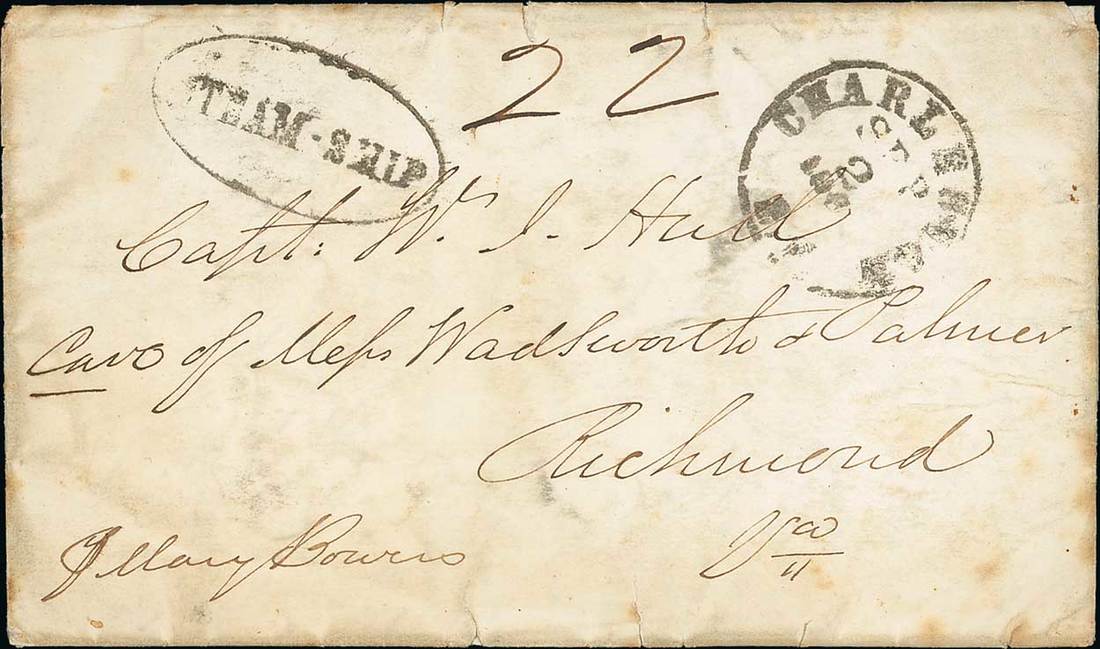 TEAM-SHIP
22
CHARLESTON
SEP
Capt: Wm J. Hall
Care of Mess Wadsworth & Palmer
Richmond
Va
Mary Bowers